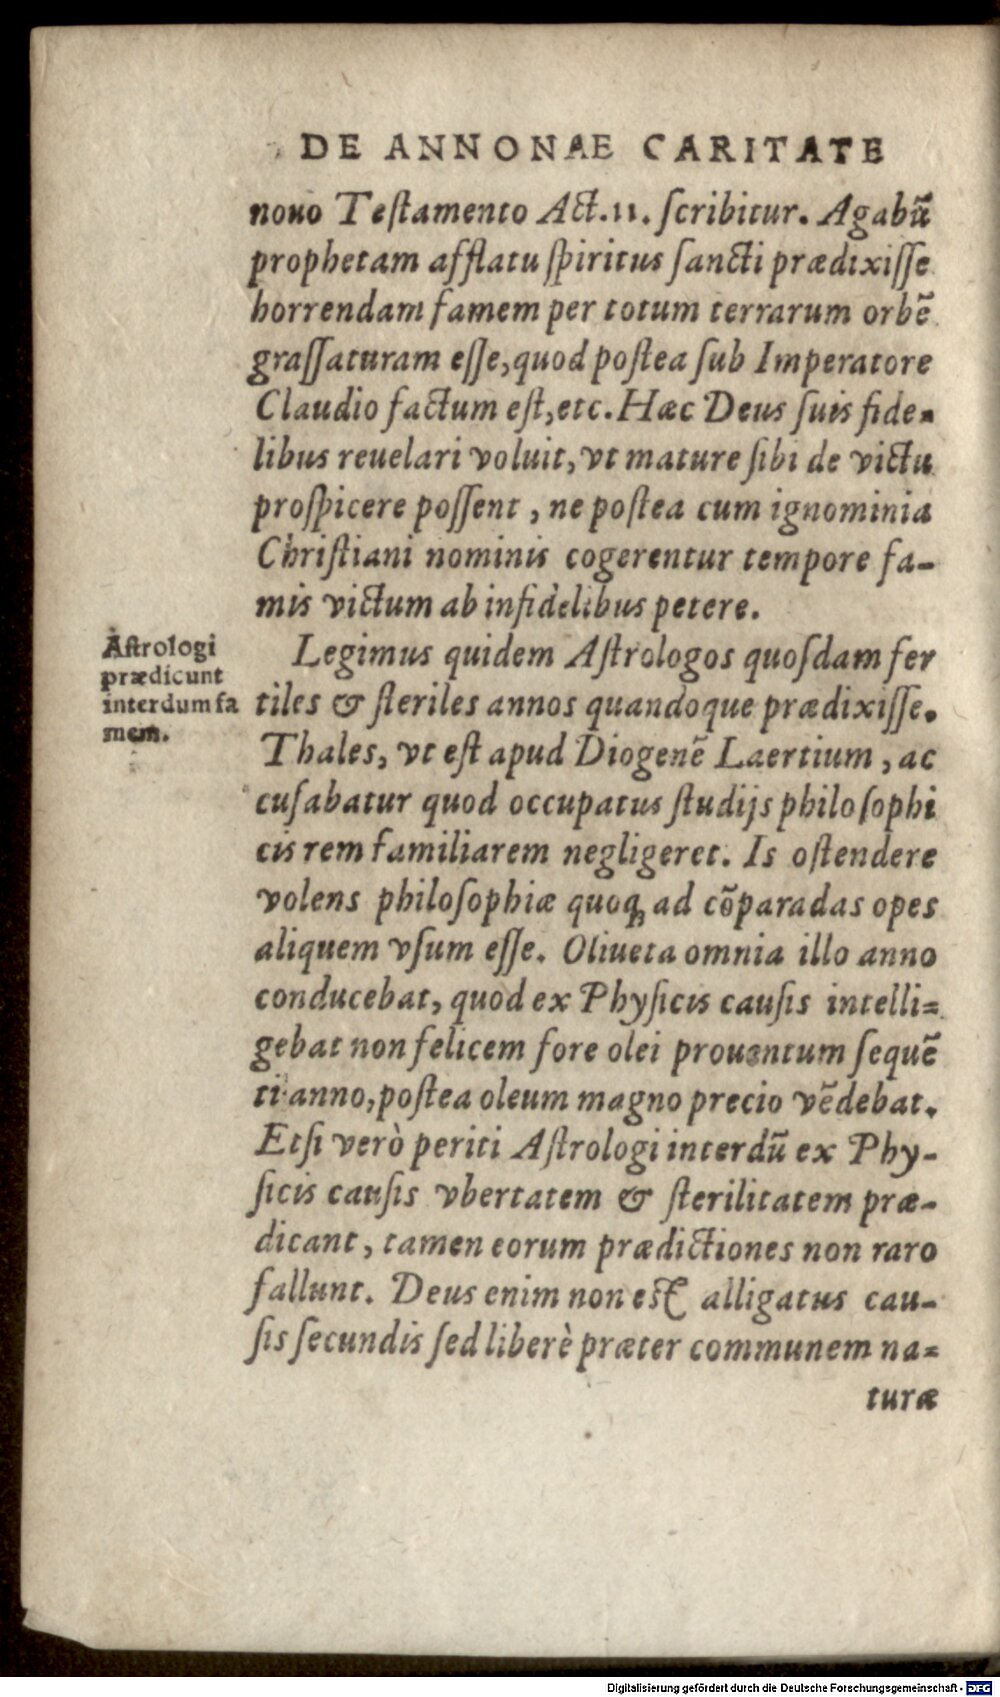 DE ANNONAE CARITATE
nouo Teſtamento Act.11. ſcribitur. Agabū
prophetam afflatu ſpiritus ſancti prædixiſſe
horrendam famem per totum terrarum orbē
graſſaturam eſſe, quod poſtea ſub Imperatore
Claudio factum eſt, etc. Hæc Deus ſuis fide=
libus reuelari voluit, vt mature ſibi de victu
proſpicere poſſent, ne poſtea cum ignominia
Chriſtiani nominis cogerentur tempore fa-
mis victum ab infidelibus petere.
Aſtrologi
prædicunt
interdum fa
mem.
Legimus quidem Aſtrologos quoſdam fer
tiles & ſteriles annos quandoque prædixiſſe.
Thales, vt eſt apud Diogenē Laertium, ac
cuſabatur quod occupatus ſtudijs philoſophi
cis rem familiarem negligeret. Is oſtendere
volens philoſophiæ quoq; ad cōparadas opes
aliquem vſum eſſe. Oliueta omnia illo anno
conducebat, quod ex Phyſicis cauſis intelli=
gebat non felicem fore olei prouentum ſequē
ti anno, poſtea oleum magno precio vēdebat.
Etſi verò periti Aſtrologi interdū ex Phy-
ſicis cauſis vbertatem & ſterilitatem præ-
dicant, tamen eorum prædictiones non raro
fallunt. Deus enim non eſt alligatus cau-
ſis ſecundis ſed liberè præter communem na=
turæ
Digitalisierung gefördert durch die Deutsche Forschungsgemeinschaft - DFG